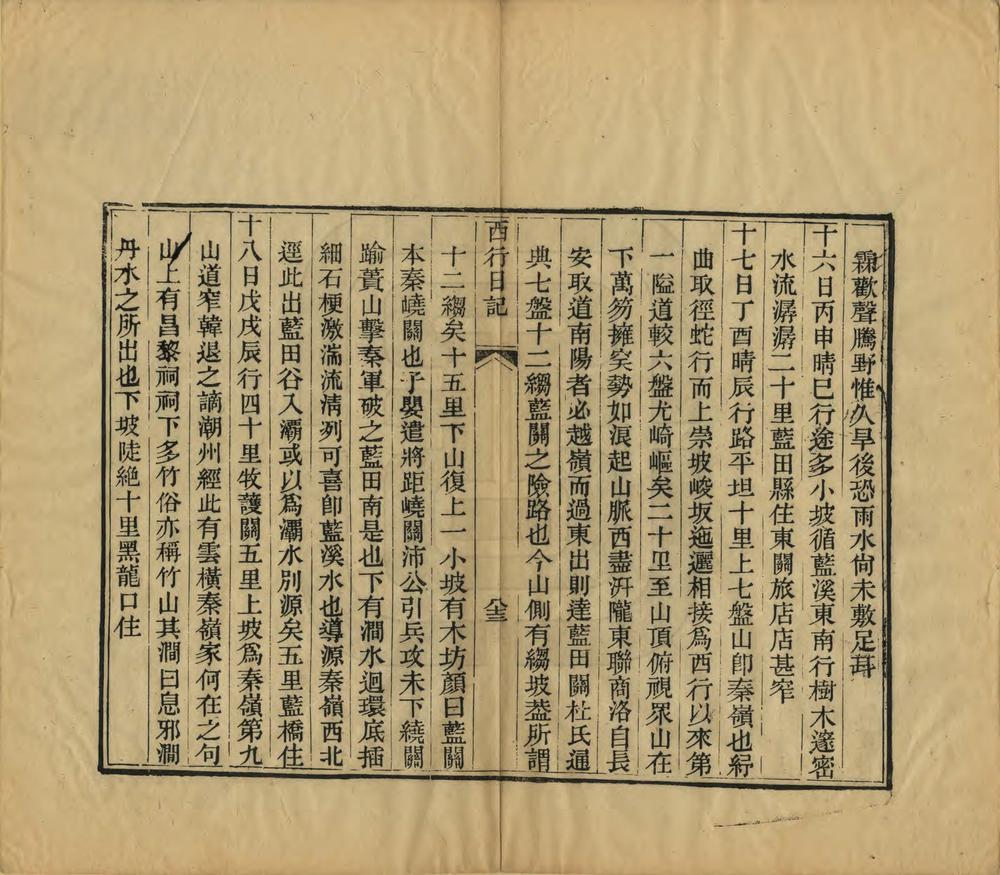 霖歡聲騰野惟久旱後恐雨水尙未敷足耳
十六日丙申晴巳行途多小坡循藍溪東南行樹木邃密
水流潺潺二十里藍田縣住東關旅店店甚窄
十七日丁酉晴辰行路平坦十里上七盤山卽秦嶺也紆
曲取徑蛇行而上崇坡峻坂迤邐相接爲西行以來第
一隘道較六盤尤崎嶇矣二十里至山頂俯視衆山在
下萬笏擁突勢如浪起山脈西盡汧隴東聯商洛自長
安取道南陽者必越嶺而過東出則達藍田關杜氏通
典七盤十二縐藍關之險路也今山側有縐坡葢所謂
西行日記
八十三
十二縐矣十五里下山復上一小坡有木坊顏曰藍關
本秦嶢關也子嬰遣將距嶢關沛公引兵攻未下繞關
踰蕢山擊秦軍破之藍田南是也下有澗水迴環底插
細石梗激湍流淸列可喜卽藍溪水也導源秦嶺西北
逕此出藍田谷入灞或以爲灞水別源矣五里藍橋住
十八日戊戌辰行四十里牧護關五里上坡爲秦嶺第九
山道窄韓退之謫潮州經此有雲橫秦嶺家何在之句
山上有昌黎祠祠下多竹俗亦稱竹山其澗曰息邪澗
丹水之所出也下坡陡絕十里黑龍口住